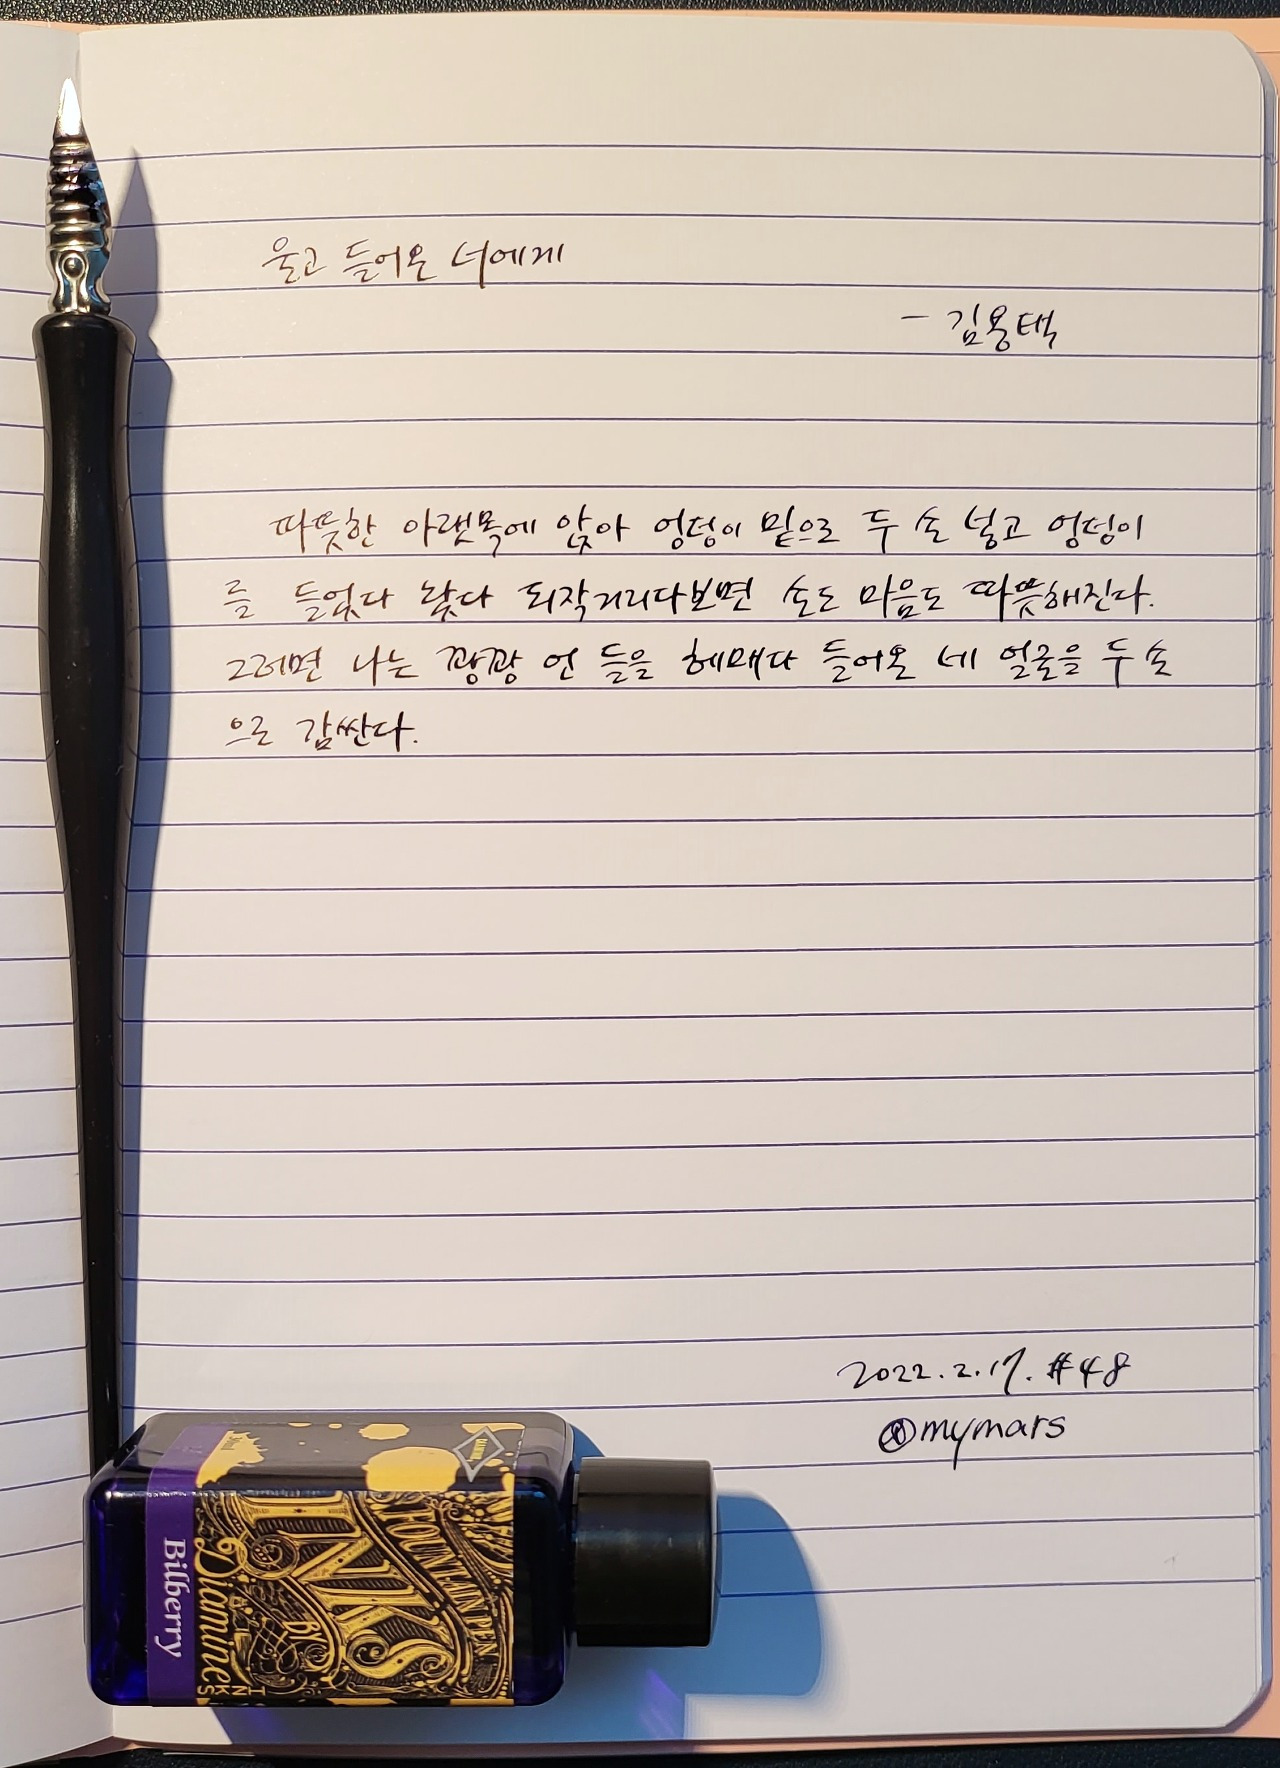 울고 들어온 너에게
- 김용택
따뜻한 아랫목에 앉아 엉덩이 밑으로 두 손 넣고 엉덩이
를 들었다 놨다 되작거리다보면 손도 마음도 따뜻해진다.
그러면 나는 꽝꽝 언 들을 헤매다 들어온 네 얼굴을 두 손
으로 감싼다.
2022.2.17. #48
@mymars
FOUNTAIN PEN
INKS
Diamine
INKS
Bilberry